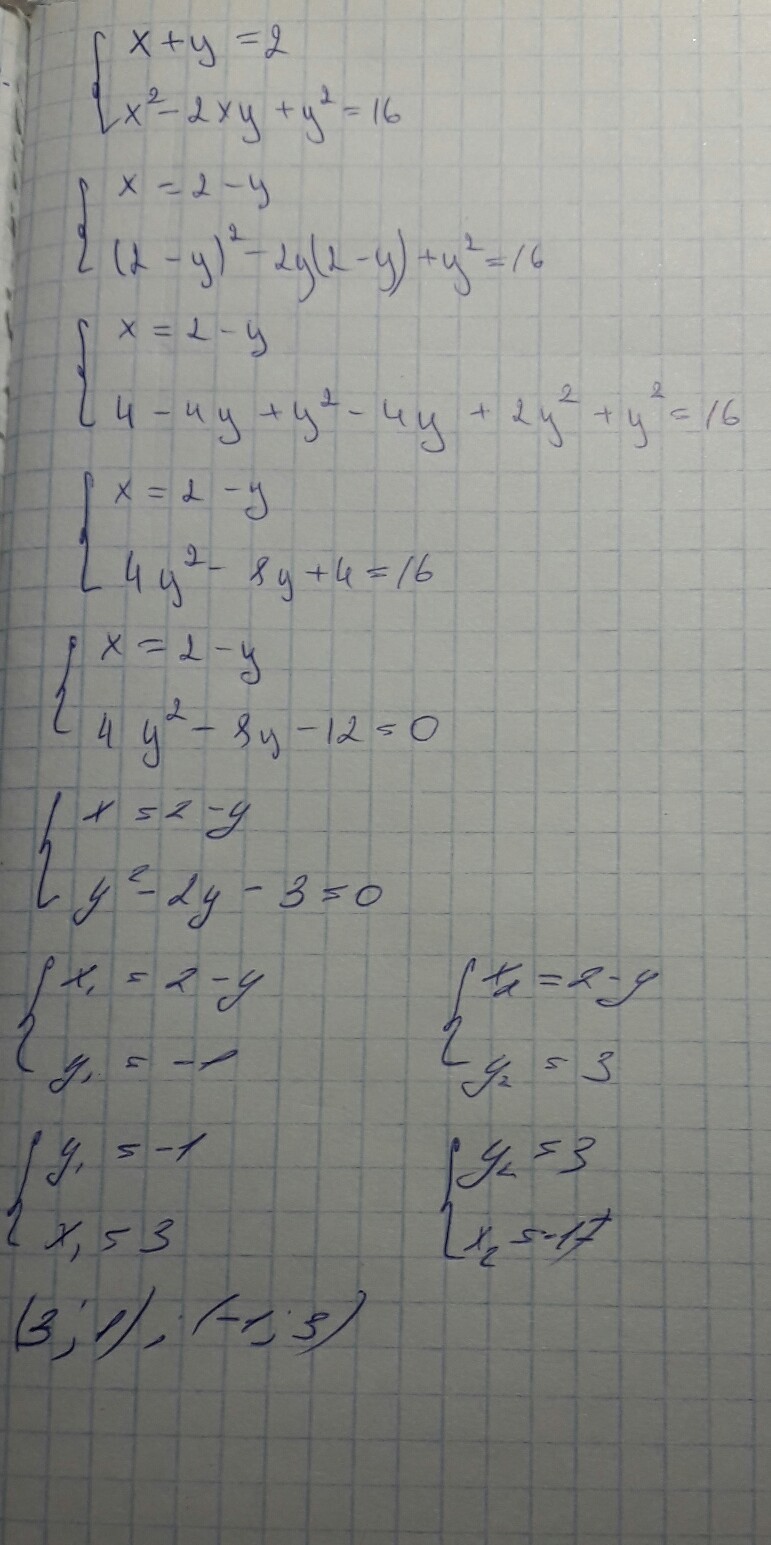 x + y = 2
x² - 2xy + y² = 16
x = 2 - y
(2 - y)² - 2y(2 - y) + y² = 16
x = 2 - y
4 - 4y + y² - 4y + 2y² + y² = 16
x = 2 - y
4y² - 8y + 4 = 16
x = 2 - y
4y² - 8y - 12 = 0
x = 2 - y
y² - 2y - 3 = 0
x₁ = 2 - y
y₁ = -1
x₂ = 2 - y
y₂ = 3
y₁ = -1
x₁ = 3
y₂ = 3
(3; 1), (-1; 3)